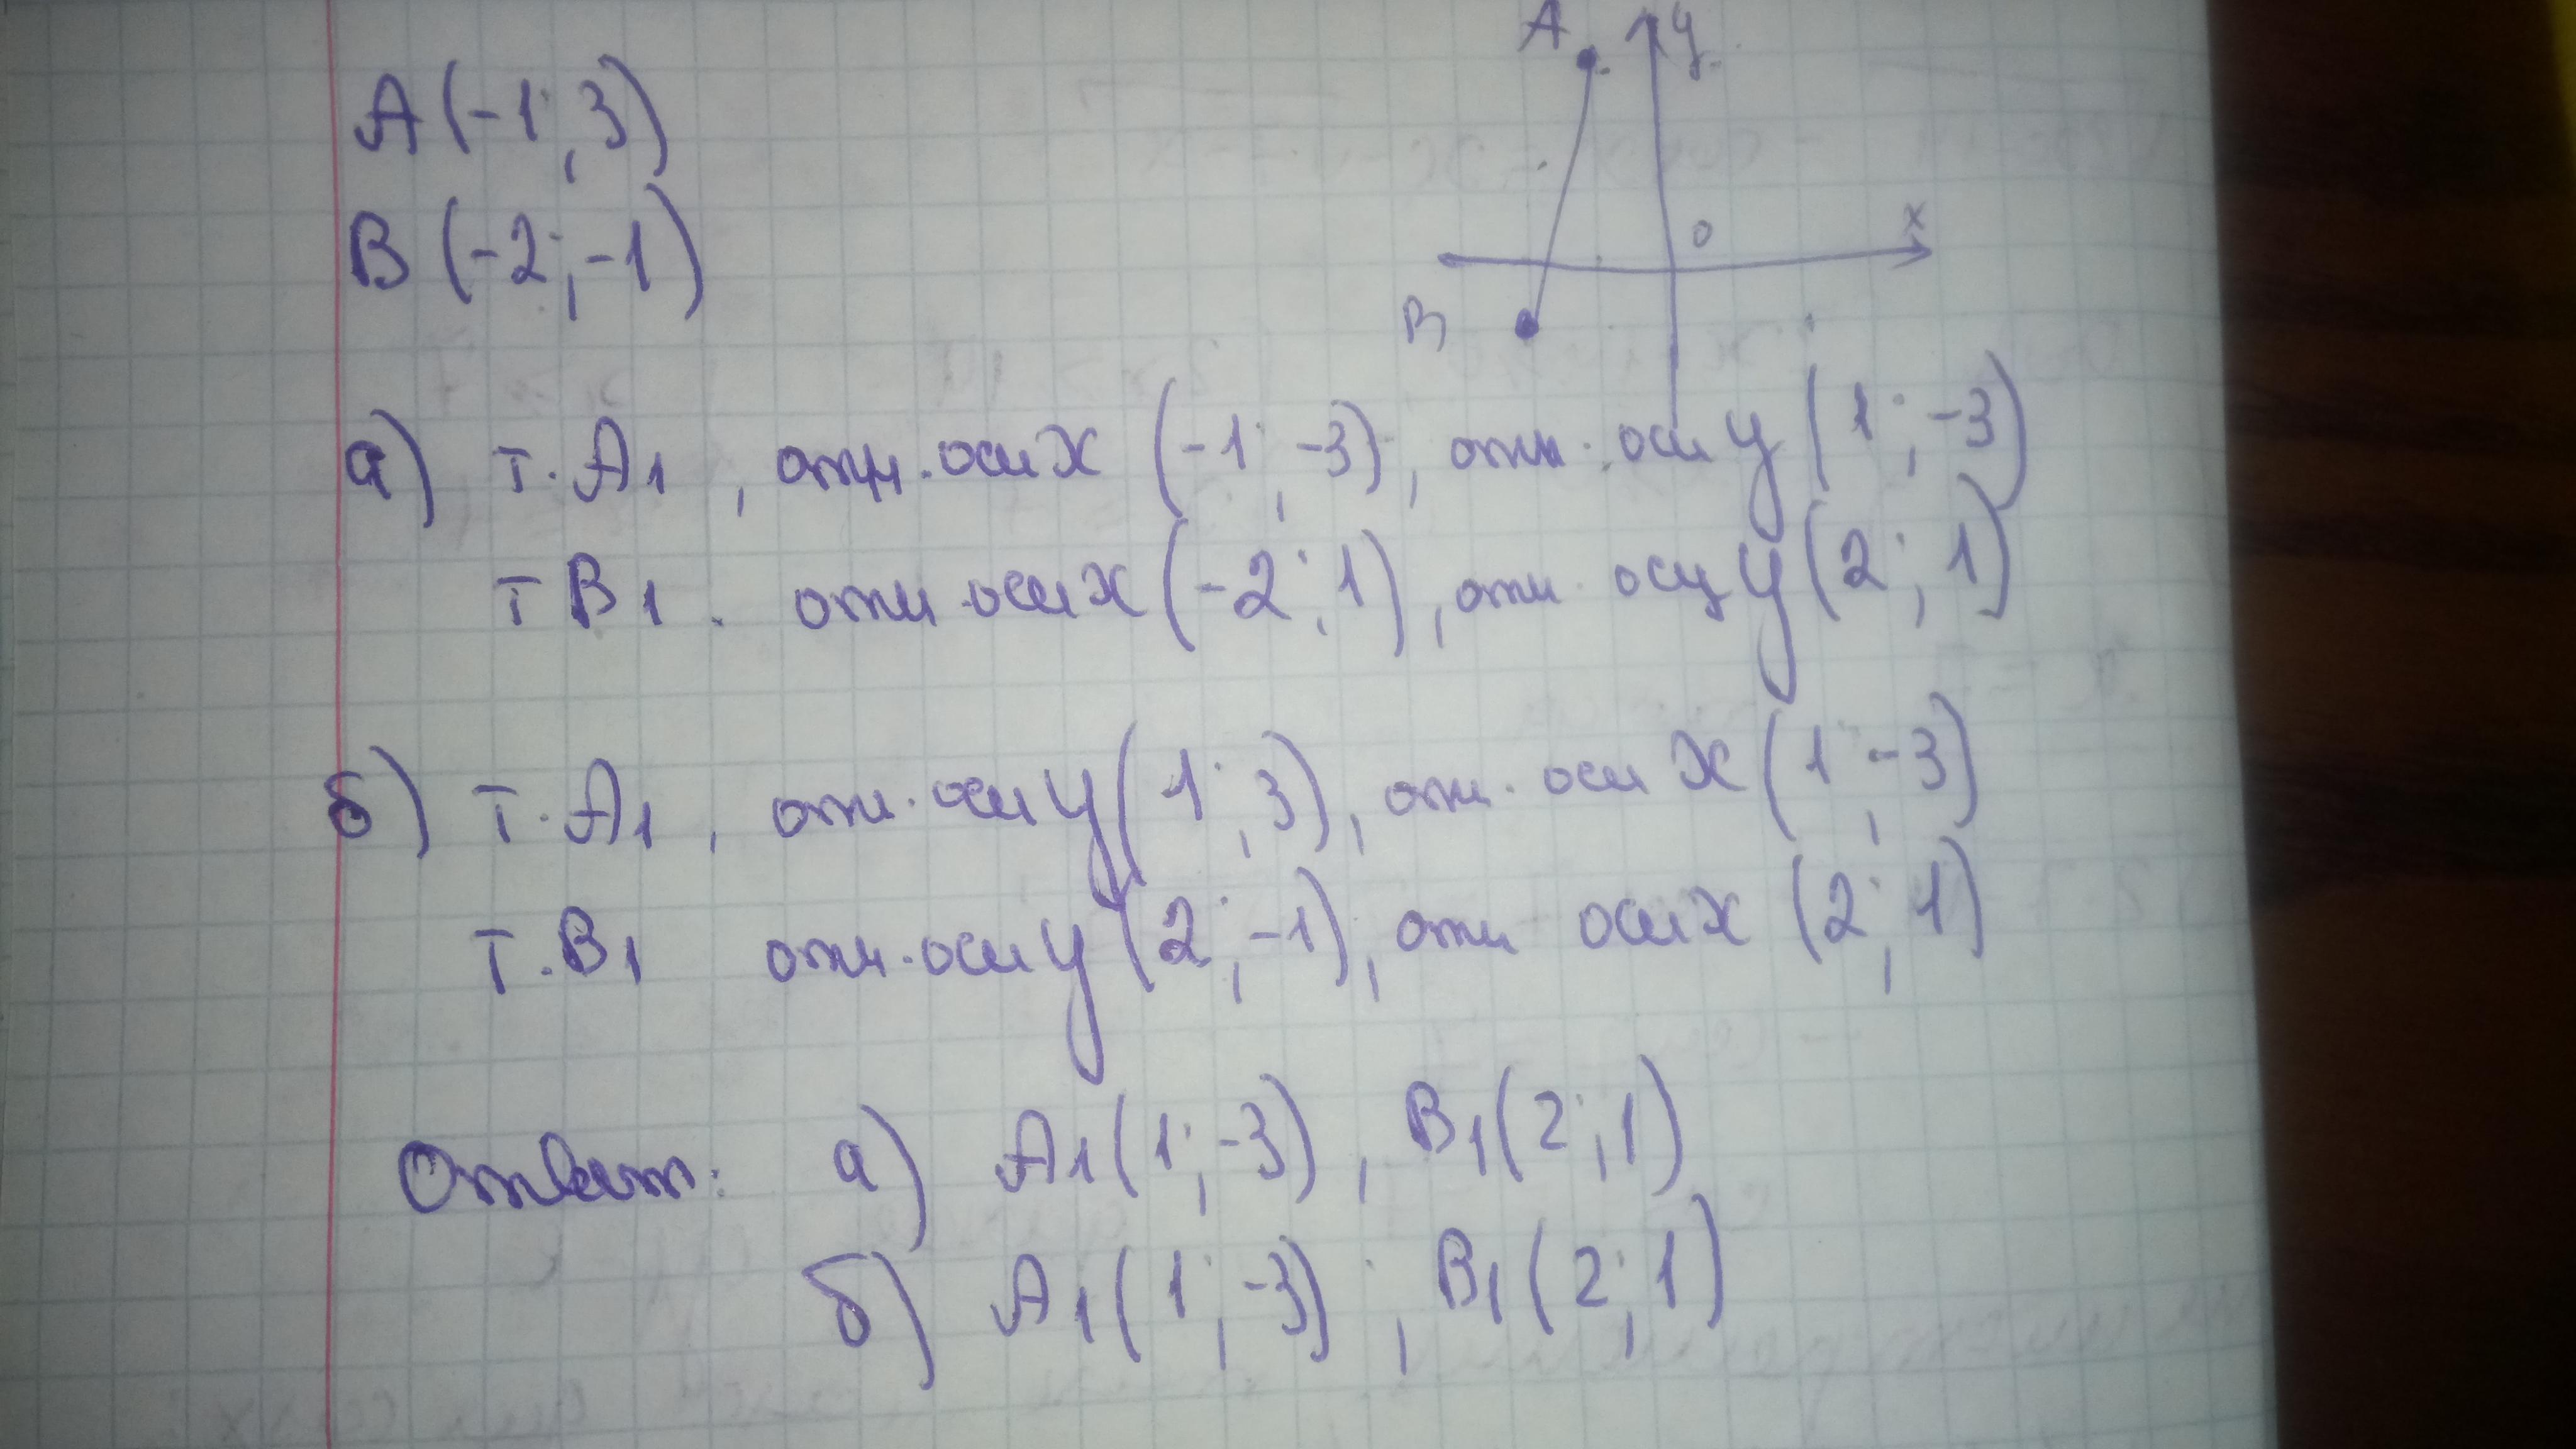 A y
A(-1; 3)
B(-2; -1)
0 x
B
а) т. A1, отн. оси x (-1; -3), отн. оси y (1; -3)
т B1. отн оси x (-2; 1), отн. оси y (2; 1)
б) т. A1, отн. оси y (1; 3), отн. оси x (1; -3)
т. B1 отн. оси y (2; -1), отн оси x (2; 1)
Ответ: а) A1(1; -3), B1(2; 1)
б) A1(1; -3), B1(2; 1)